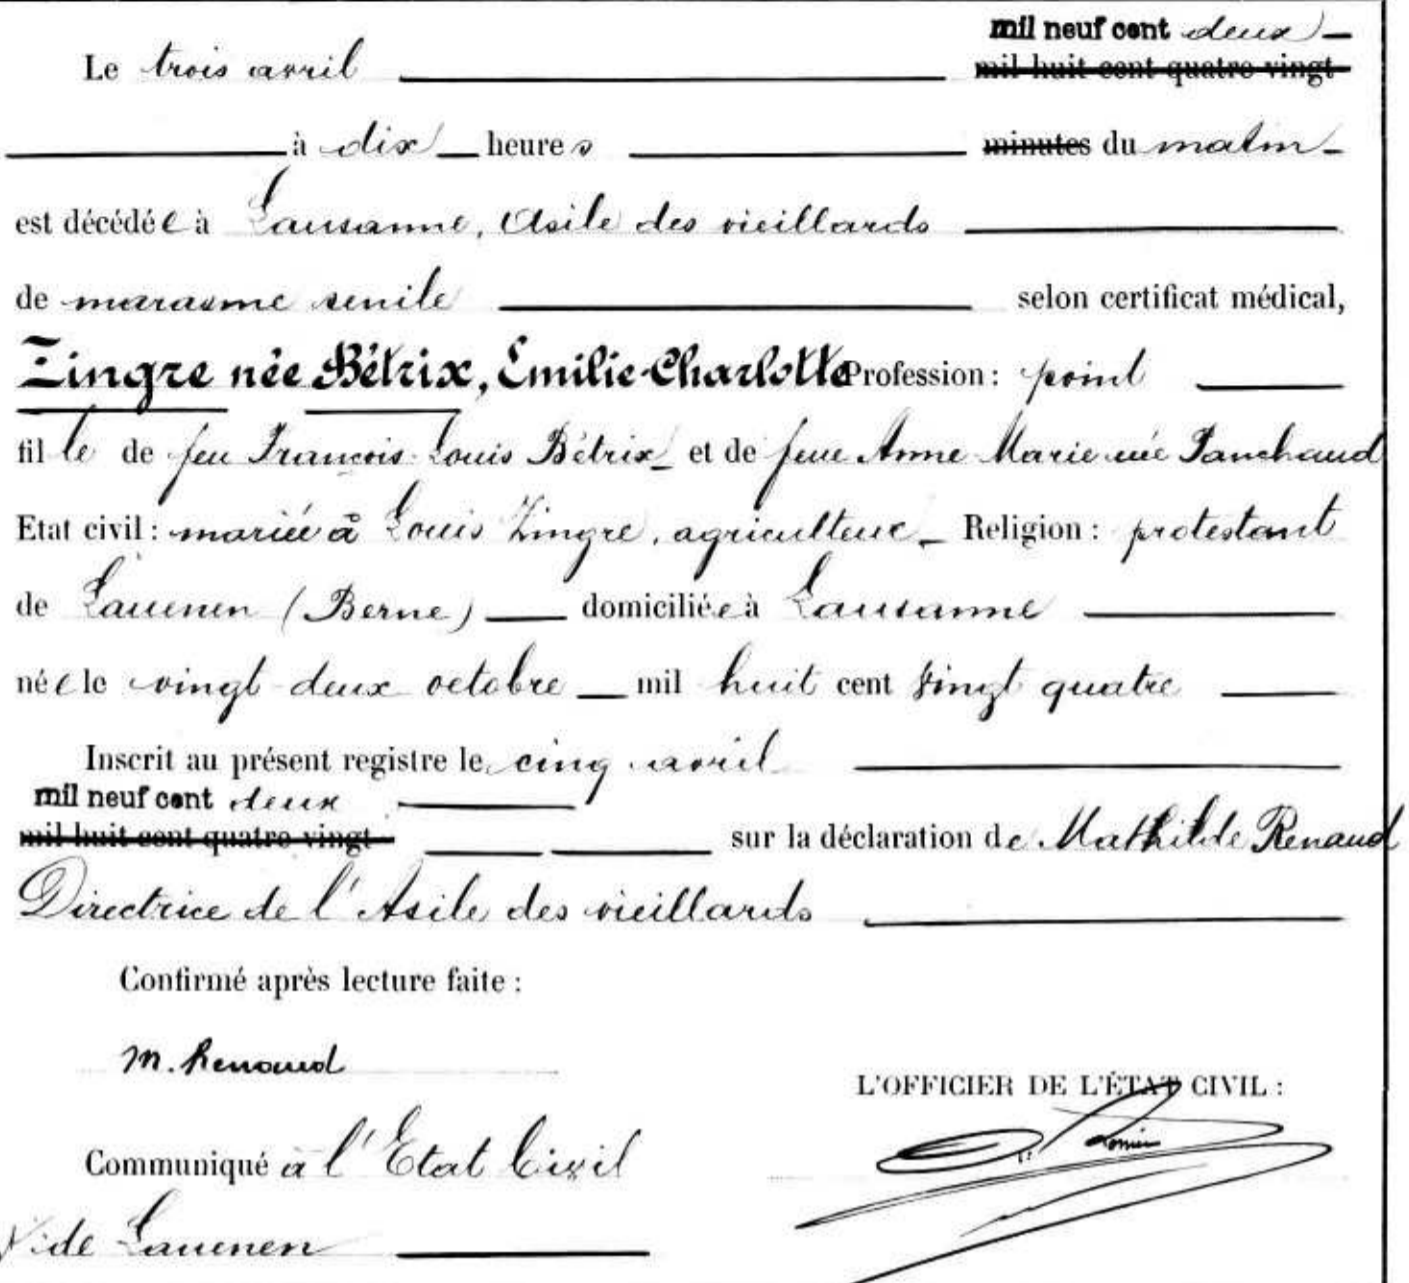 mil neuf cent deux
Le trois avril mil huit cent quatre vingt
à dix heures minutes du matin
est décédée à Lausanne, Asile des vieillards
de marasme senile selon certificat médical,
Zingre née Bétrix, Emilie-Charlotte Profession : point
fille de feu François-Louis Bétrix et de feue Anne Marie née Panchaud
Etat civil : mariée à Louis Zingre, agriculteur Religion : protestant
de Lauenen (Berne) domiciliée à Lausanne
née le vingt-deux octobre mil huit cent vingt quatre
Inscrit au présent registre le cinq avril
mil neuf cent deux
mil huit cent quatre vingt sur la déclaration de Mathilde Renaud
Directrice de l'Asile des vieillards
Confirmé après lecture faite :
M. Renaud
L'OFFICIER DE L'ÉTAT CIVIL :
Communiqué à l'Etat Civil
de Lauenen